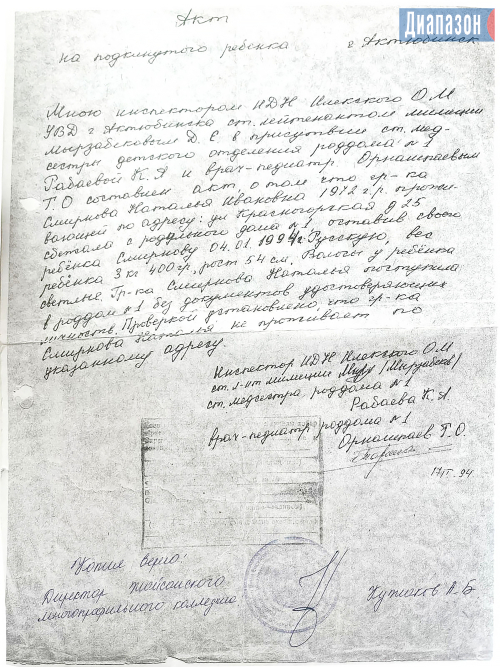 Диапазон
Акт
на подкинутого ребенка г Актюбинск
Мною инспектором ИДН Илекского О.М
УВД г Актюбинска ст. лейтенантом милиции
Мырзабековым Д. Е в присутствии ст. мед-
сестры детского отделения роддома №1
Рабаевой К. Я и врач-педиатр Орнаштаевым
Т. О составлен акт о том что гр-ка
Смирнова Наталья Ивановна 1972 г.р. прожи-
вающей по адресу: ул Красногорская д 25
сбежала с родильного дома №1, оставив своего
ребёнка Смирнову 04.01.1994г. Русскую, вес
ребёнка 3 кг 400 гр, рост 54 см, Волосы у ребёнка
светлые. Гр-ка Смирнова Наталья поступила
в роддом №1 без документов удостоверяющих
личность. Проверкой установлено, что гр-ка
Смирнова Наталья не проживает по
указанному адресу.
Инспектор ИДН Илекского О.М
ст. л-нт милиции
ст. медсестра роддома №1
Рабаева К. Я.
врач-педиатр роддома №1
Орнаштаев Т. О.
94
Копия верна:
Директор
многопрофильного колледжа